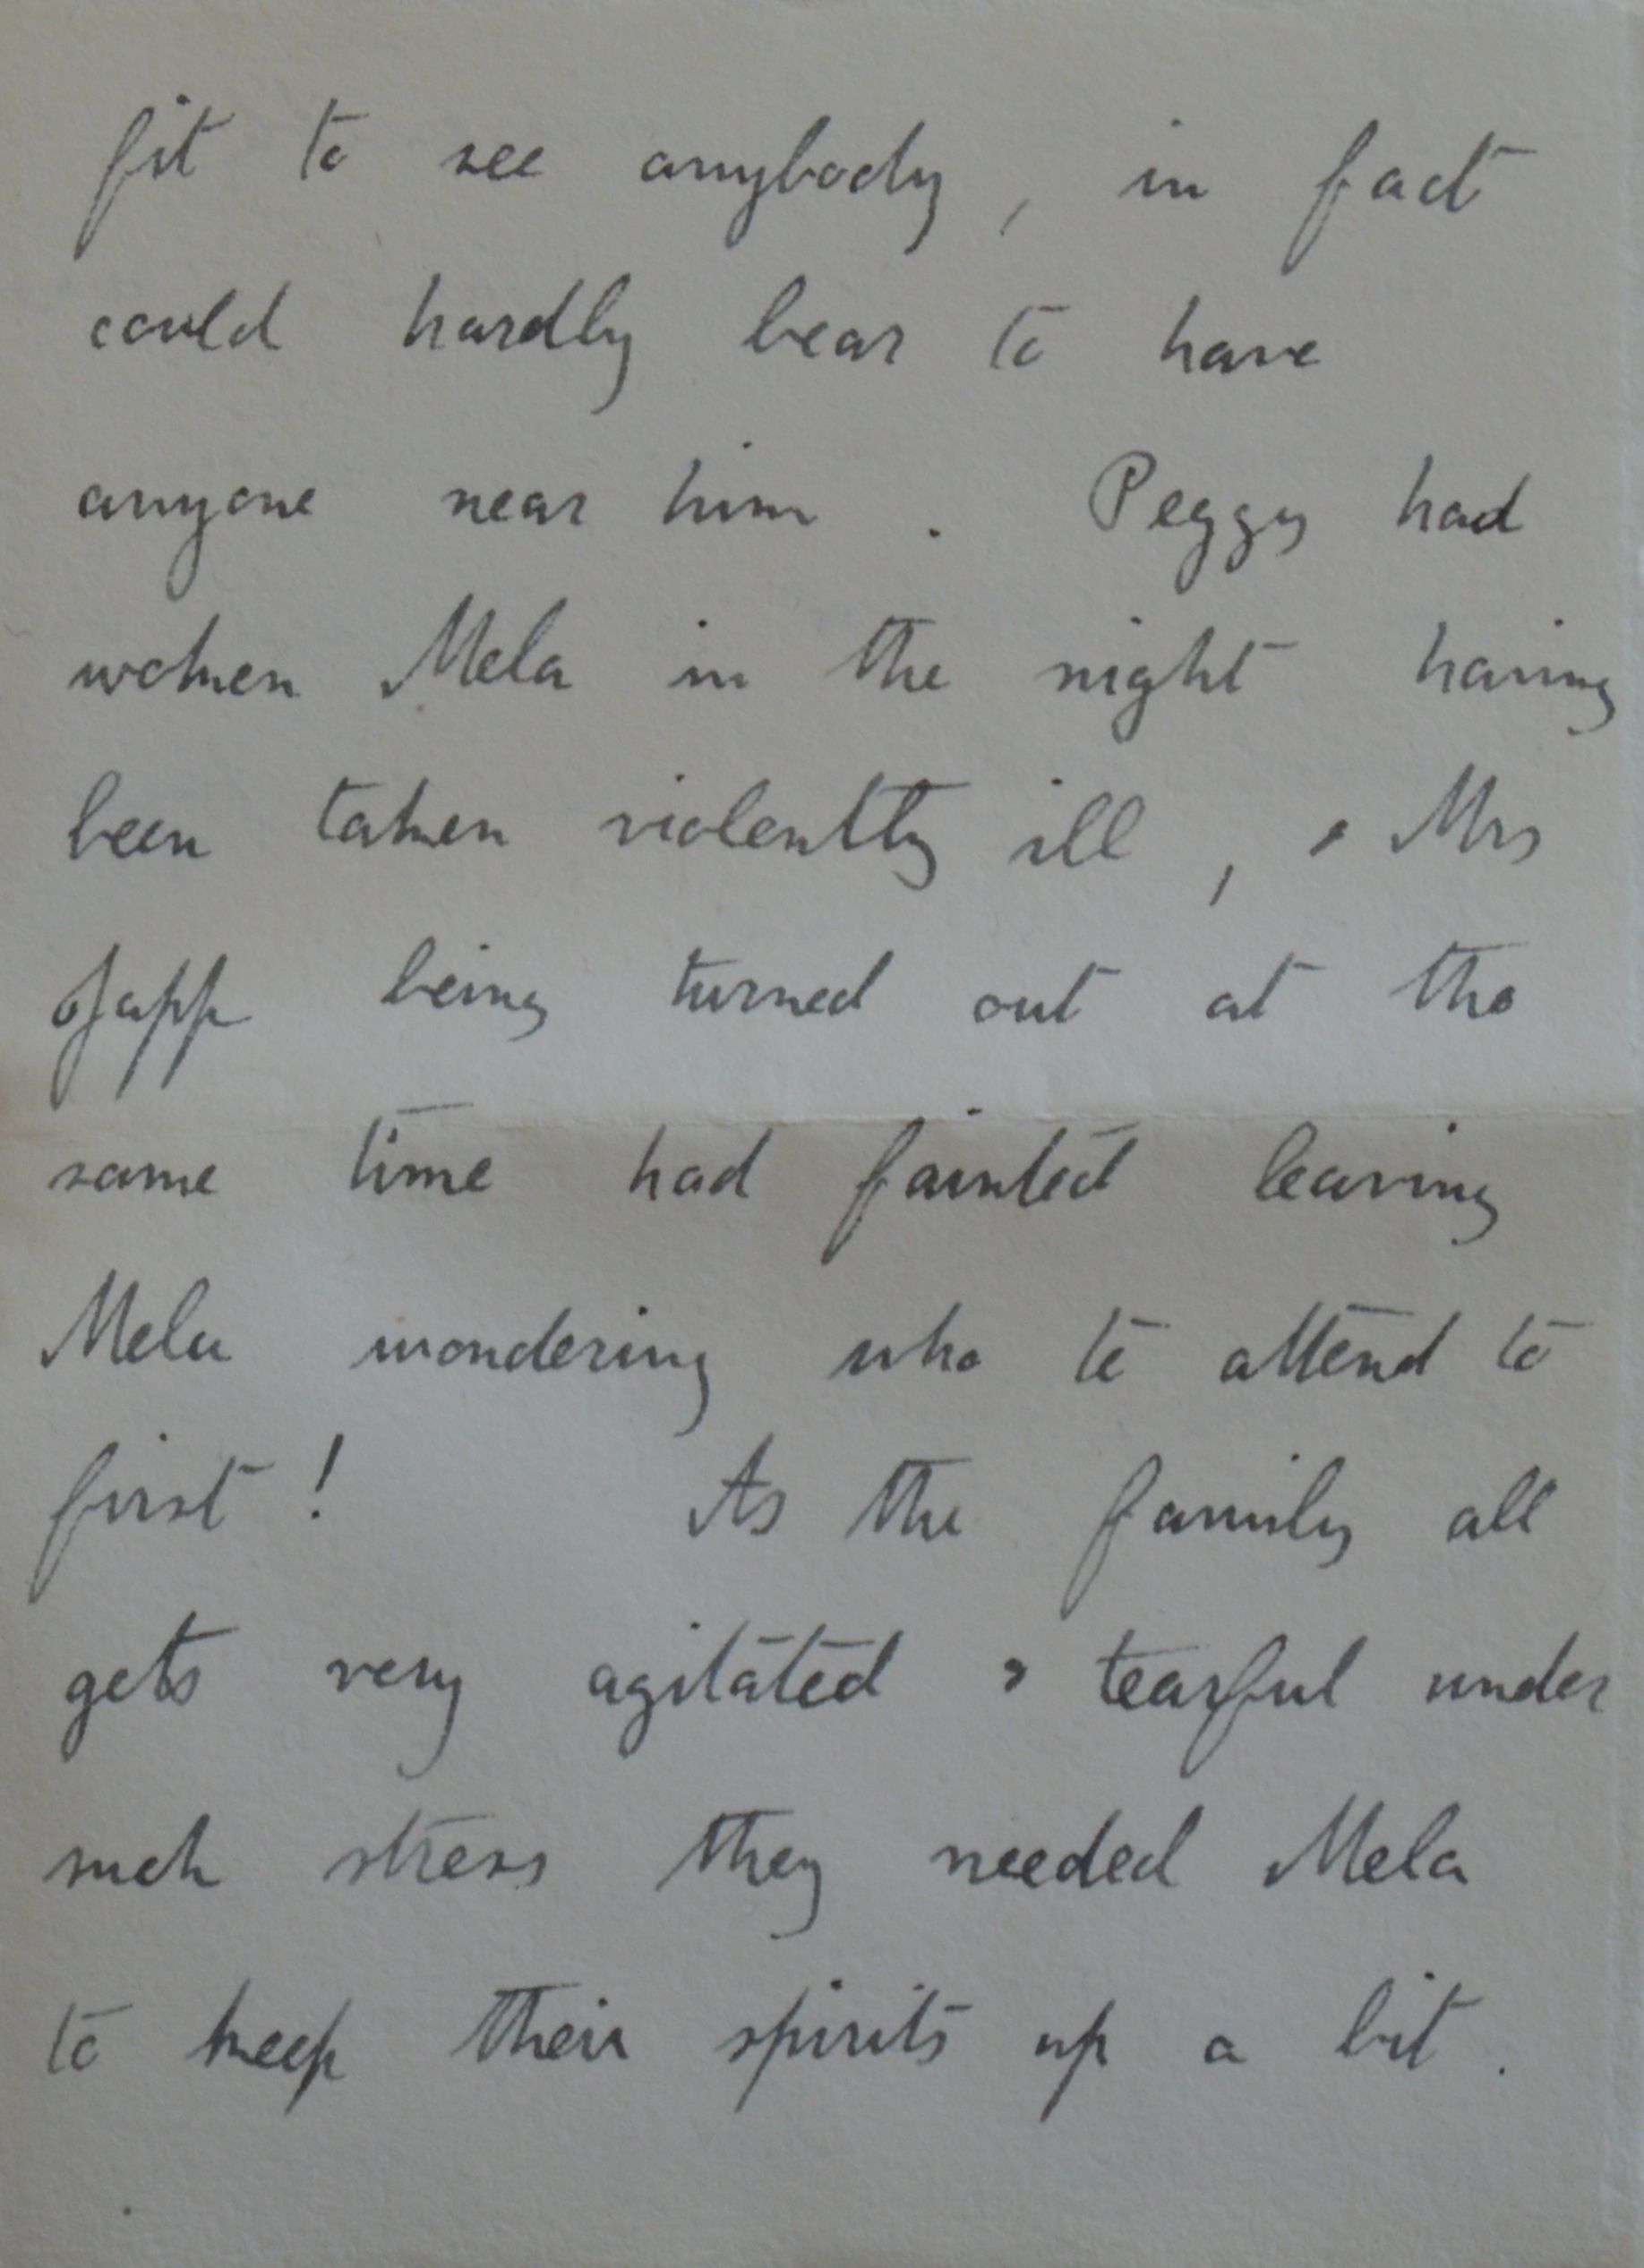 fit to see anybody, in fact
could hardly bear to have
anyone near him. Peggy had
woken Mela in the night having
been taken violently ill, & Mrs
Japp being turned out at the
same time had fainted leaving
Mela wondering who to attend to
first! As the family all
gets very agitated & tearful under
such stress they needed Mela
to keep their spirits up a bit.